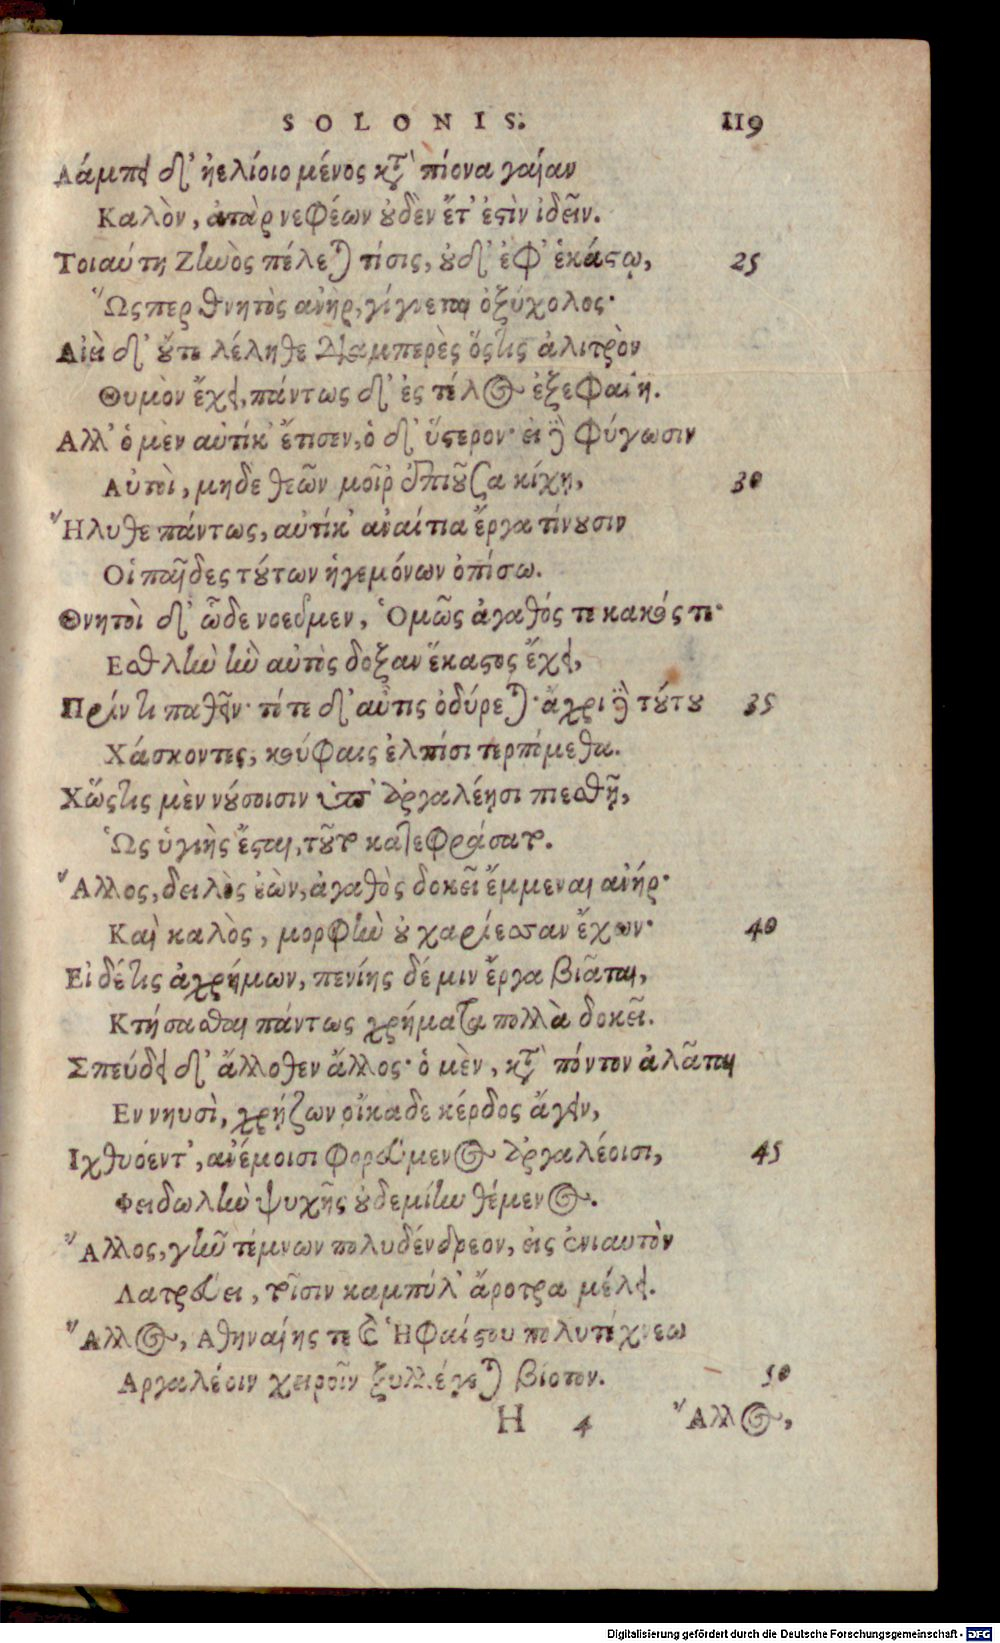 SOLONIS. 119
Λάμπει δ' ἠελίοιο μένος κατὰ πίονα γαῖαν
Καλὸν, ἀτὰρ νεφέων οὐδὲν ἔτ' ἐστὶν ἰδεῖν.
Τοιαύτη Ζηνὸς πέλεται τίσις, οὐδ' ἐφ' ἑκάστῳ, 25
Ὥσπερ θνητὸς ἀνὴρ, γίγνεται ὀξύχολος·
Αἰεὶ δ' οὔτε λέληθε διαμπερὲς ὅστις ἀλιτρὸν
Θυμὸν ἔχει, πάντως δ' ἐς τέλος ἐξεφαίνη.
Αλλ' ὁ μὲν αὐτίκ' ἔτισεν, ὁ δ' ὕστερον· εἰ δὲ φύγωσιν
Αὐτοὶ, μηδε θεῶν μοῖρ' ἐπιοῦσα κίχῃ, 30
Ἤλυθε πάντως, αὐτίκ' ἀναίτια ἔργα τίνουσιν
Οἱ παῖδες τούτων ἡγεμόνων ὀπίσω.
Θνητοὶ δ' ὧδε νοεῦμεν, Ὁμῶς ἀγαθός τε κακός τε·
Εσθλὴν ἣν αὐτὸς δοξαν ἕκαστος ἔχει,
Πρίν τι παθεῖν· τότε δ' αὖτις ὀδύρεται· ἄχρι δὲ τούτου 35
Χάσκοντες, κούφαις ἐλπίσι τερπόμεθα.
Χὥστις μὲν νούσοισιν ὑπ' ἀργαλέῃσι πιεσθῇ,
Ὡς ὑγιὴς ἔσται, τοῦτο κατεφράσατο.
Ἄλλος, δειλὸς ἐὼν, ἀγαθὸς δοκεῖ ἔμμεναι ἀνήρ·
Καὶ καλὸς, μορφὴν οὐ χαρίεσσαν ἔχων· 40
Εἰ δέ τις ἀχρήμων, πενίης δέ μιν ἔργα βιᾶται,
Κτήσασθαι πάντως χρήματα πολλὰ δοκεῖ.
Σπεύδει δ' ἄλλοθεν ἄλλος· ὁ μὲν, κατὰ πόντον ἀλᾶται
Εν νηυσὶ, χρῄζων οἴκαδε κέρδος ἄγειν,
Ιχθυόεντ', ἀνέμοισι φορεύμενος ἀργαλέοισι, 45
Φειδωλὴν ψυχῆς οὐδεμίην θέμενος.
Ἄλλος, γῆν τέμνων πολυδένδρεον, εἰς ἐνιαυτὸν
Λατρεύει, τοῖσιν καμπύλ' ἄροτρα μέλει.
Ἄλλος, Αθηναίης τε καὶ Ἡφαίστου πολυτέχνεω
Αργαλέοιν χειροῖν ξυλλέγεται βίοτον. 50
H 4 Ἄλλος,
Digitalisierung gefördert durch die Deutsche Forschungsgemeinschaft - DFG